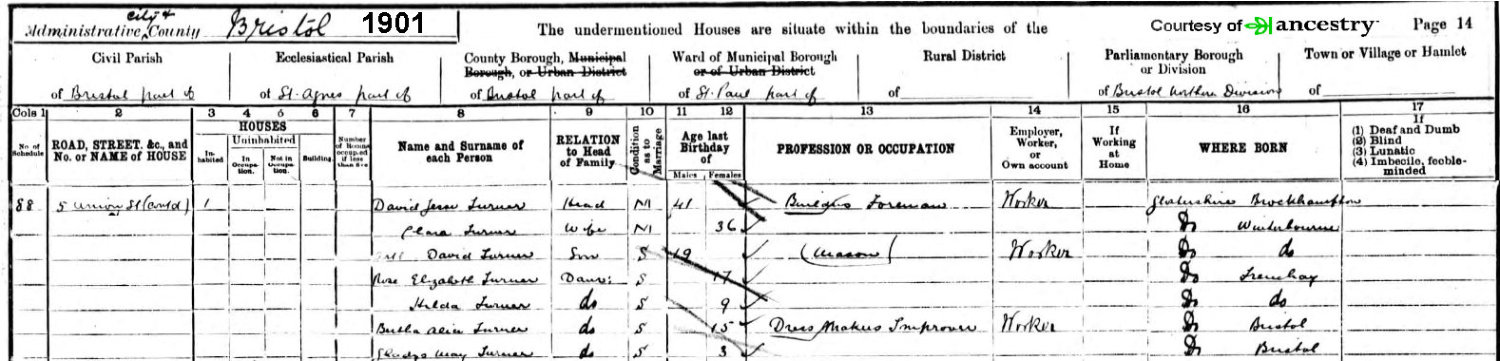 Administrative city & County Bristol 1901 The undermentioned Houses are situate within the boundaries of the Courtesy of ancestry Page 14
Civil Parish Ecclesiastical Parish County Borough, Municipal Borough, or Urban District Ward of Municipal Borough or of Urban District Rural District Parliamentary Borough or Division Town or Village or Hamlet
of Bristol part of of St. Agnes part of of Bristol part of of St. Paul part of of of Bristol Northern Division of
Cols 1 2 3 4 5 6 7 8 9 10 11 12 13 14 15 16 17
No. of Schedule ROAD, STREET, &c., and No. or NAME of HOUSE HOUSES In-habited Uninhabited In Occupa-tion. Not in Occupa-tion. Building. Number of Rooms occupied if less than five Name and Surname of each Person RELATION to Head of Family Condition as to Marriage Age last Birthday of Males Females PROFESSION OR OCCUPATION Employer, Worker, or Own account If Working at Home WHERE BORN If (1) Deaf and Dumb (2) Blind (3) Lunatic (4) Imbecile, feeble-minded
88 5 Union St (Contd) 1 David Jesse Turner Head M 41 Builders Foreman Worker Glostershire Brockhampton
Clara Turner Wife M 36 Do Winterbourne
David Turner Son S 19 (Mason) Worker Do do
Rose Elizabeth Turner Daur: S 17 Do Frenchay
Hilda Turner do S 9 Do do
Bertha Alice Turner do S 15 Dress Makers Improver Worker Do Bristol
Gladys May Turner do S 3 Do Bristol